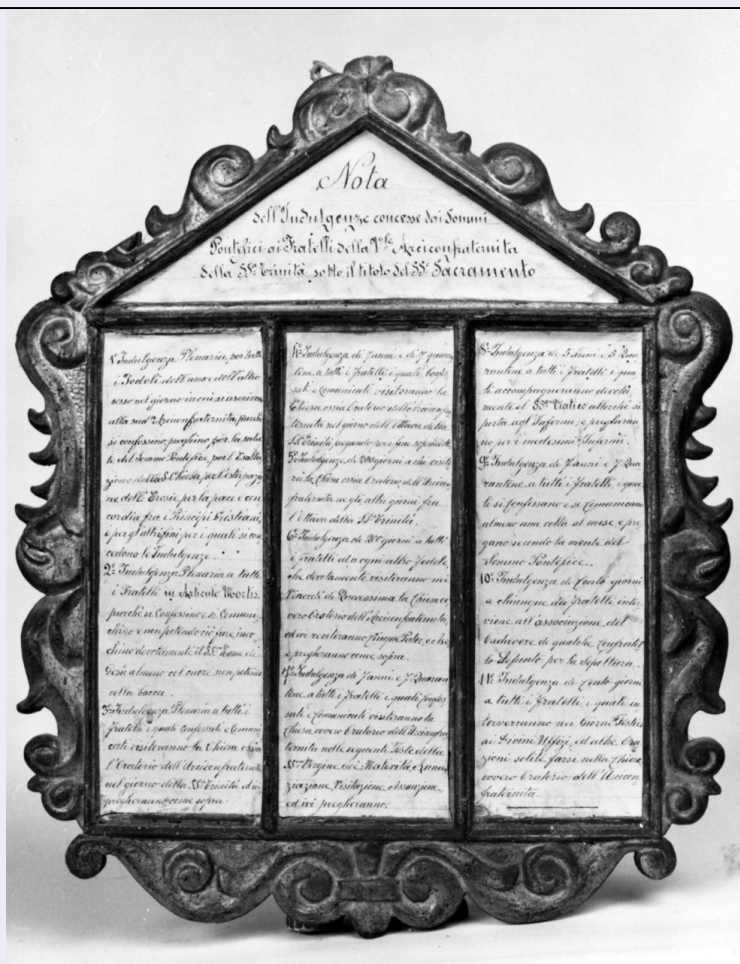 Nota
dell'Indulgenze concesse dai Sommi
Pontefici ai Fratelli della Vble Arciconfraternita
della SS. Trinità sotto il titolo del SS. Sacramento
1ª Indulgenza Plenaria per tutti
i Fedeli dell'uno e dell'altro
sesso nel giorno in cui si ascrivon
alla sudª Arciconfraternita, purchè
si confessino, preghino per la salu
te del Sommo Pontefice, per l'esalta
zione della S. Chiesa, per l'estirpazio
ne dell'Eresie per la pace e con
cordia fra i Principi Cristiani,
e per gli altri fini per i quali si con
cedono le Indulgenze.
2ª Indulgenza Plenaria a tutti
i Fratelli in Articulo Mortis,
purchè si confessino e si comuni
chino e non potendo ciò fare, invo
chino devotamente il SS. Nome di
Gesù almeno col cuore non potendo
colla bocca.
3ª Indulgenza Plenaria a tutti i
Fratelli i quali Confessati e Comuni
cati visiteranno la Chiesa ossia
l'Oratorio dell'Arciconfraternita
nel giorno della SS. Trinità ed ivi
pregheranno come sopra.
4ª Indulgenza di 7 anni e di 7 quaran
tene a tutti i Fratelli i quali Confes
sati e Comunicati visiteranno la
Chiesa ossia Oratorio dell'Arciconfra
ternita nel giorno dell'Ottava della
SS. Trinità, pregando per i fini sopradetti.
5ª Indulgenza di 200 giorni a chi visite
rà la Chiesa ossia Oratorio dell'Arcicon
fraternita negli altri giorni fra
l'Ottava della SS. Trinità.
6ª Indulgenza di 100 giorni a tutti
i Fratelli ed a ogni altro Fedele,
che devotamente visiteranno nei
Venerdì di Quaresima la Chiesa ov
vero Oratorio dell'Arciconfraternita,
ed ivi reciteranno cinque Pater, e Ave
e pregheranno come sopra.
7ª Indulgenza di 7 anni e 7 Quaran
tene a tutti i Fratelli i quali confes
sati e comunicati visiteranno la
Chiesa, ovvero Oratorio dell'Arciconfra
ternita nelle seguenti Feste della
SS. Vergine cioè Natività, Annun
ziazione, Visitazione, Assunzione
ed ivi pregheranno.
8ª Indulgenza di 5 anni e 5 Qua
rantene a tutti i Fratelli i qua
li accompagneranno devota
mente il SS. Viatico allorchè si
porta agl'Infermi, e pregheran
no per i medesimi Infermi.
9ª Indulgenza di 7 anni e 7 Qua
rantene a tutti i Fratelli, i qua
li si confessano e si comunicano
almeno una volta al mese, e pre
gano secondo la mente del
Sommo Pontefice.
10ª Indulgenza di Cento giorni
a chiunque dei Fratelli inter
viene all'associazione del
Cadavere di qualche Confratel
lo defunto per la sepoltura.
11ª Indulgenza di Cento giorni
a tutti i Fratelli, i quali in
terverranno nei Giorni Festivi
ai Divini Uffizi, ed altre Ora
zioni solite farsi nella Chiesa
ovvero Oratorio dell'Arcicon
fraternita.